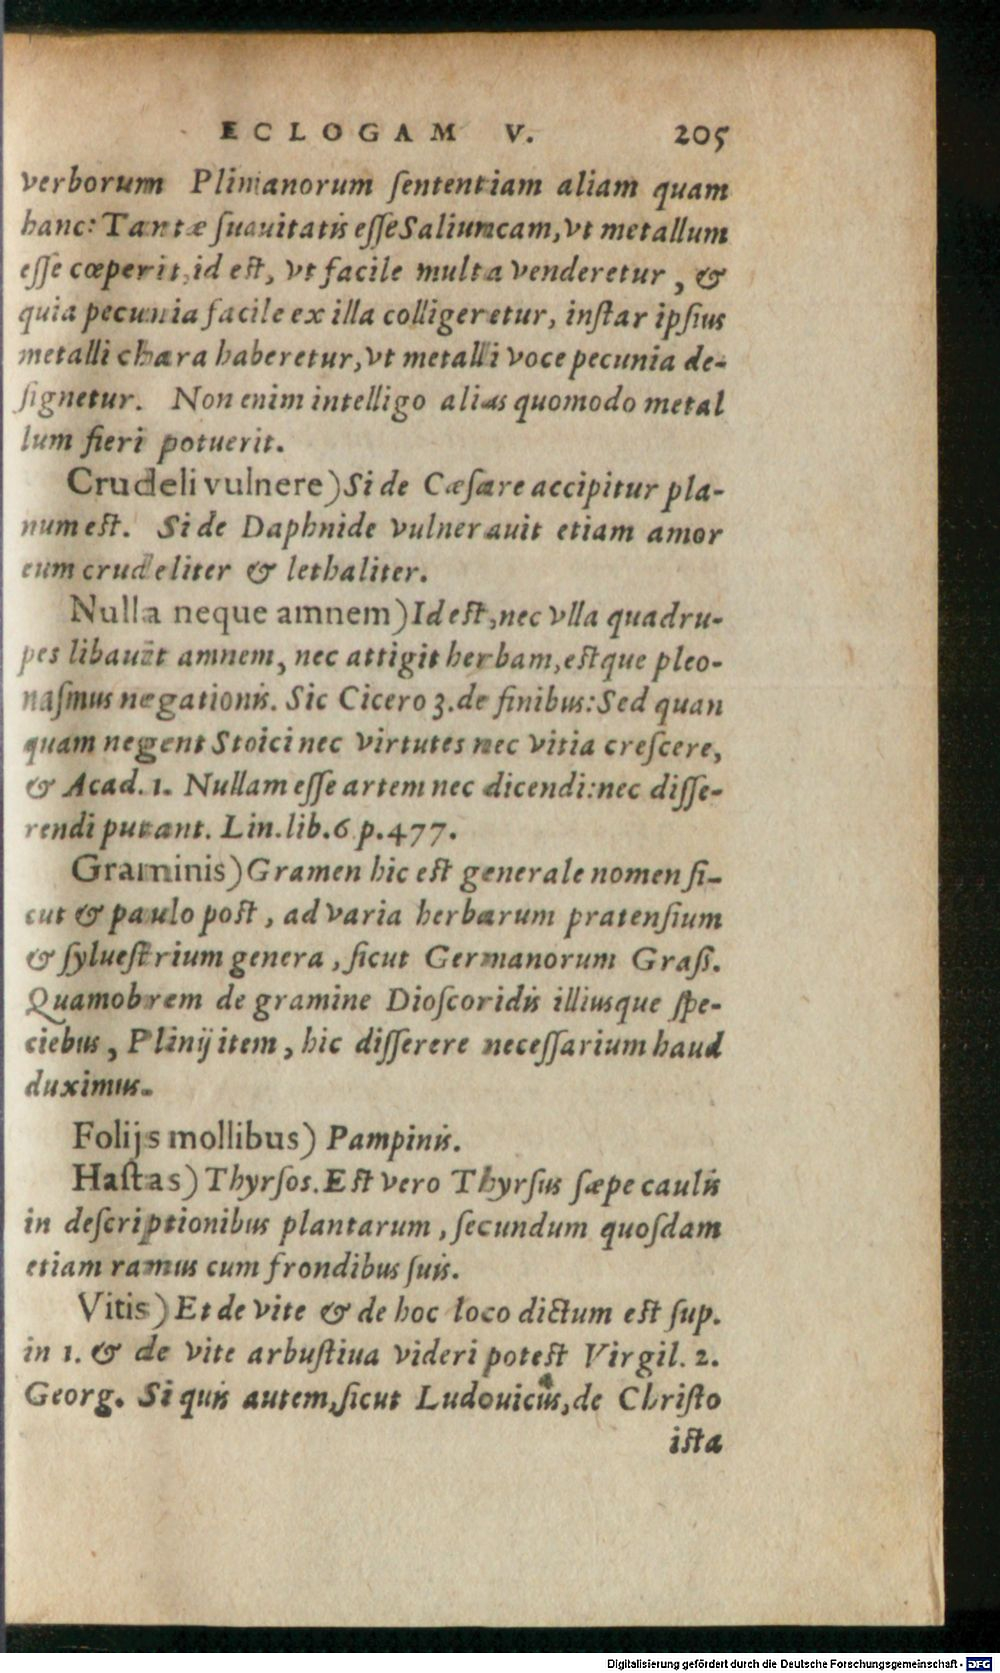 ECLOGAM V. 205
verborum Plinianorum ſententiam aliam quam
hanc: Tantæ ſuauitatis eſſe Saliuncam, vt metallum
eſſe cœperit, id eſt, vt facile multa venderetur, &
quia pecunia facile ex illa colligeretur, inſtar ipſius
metalli chara haberetur, vt metalli voce pecunia de-
ſignetur. Non enim intelligo alias quomodo metal
lum fieri potuerit.
Crudeli vulnere) Si de Cæſare accipitur pla-
num eſt. Si de Daphnide vulnerauit etiam amor
eum crudeliter & lethaliter.
Nulla neque amnem) Id eſt, nec vlla quadru-
pes libauit amnem, nec attigit herbam, eſtque pleo-
naſmus negationis. Sic Cicero 3. de finibus: Sed quan
quam negent Stoici nec virtutes nec vitia creſcere,
& Acad. 1. Nullam eſſe artem nec dicendi: nec diſſe-
rendi putant. Lin. lib. 6 p. 477.
Graminis) Gramen hic eſt generale nomen ſi-
cut & paulo poſt, ad varia herbarum pratenſium
& ſylueſtrium genera, ſicut Germanorum Graß.
Quamobrem de gramine Dioſcoridis illiusque ſpe-
ciebus, Plinij item, hic diſſerere neceſſarium haud
duximus.
Folijs mollibus) Pampinis.
Haſtas) Thyrſos. Eſt vero Thyrſus ſæpe caulis
in deſcriptionibus plantarum, ſecundum quoſdam
etiam ramus cum frondibus ſuis.
Vitis) Et de vite & de hoc loco dictum eſt ſup.
in 1. & de vite arbuſtiua videri poteſt Virgil. 2.
Georg. Si quis autem, ſicut Ludouicus, de Chriſto
iſta
Digitalisierung gefördert durch die Deutsche Forschungsgemeinschaft - DFG